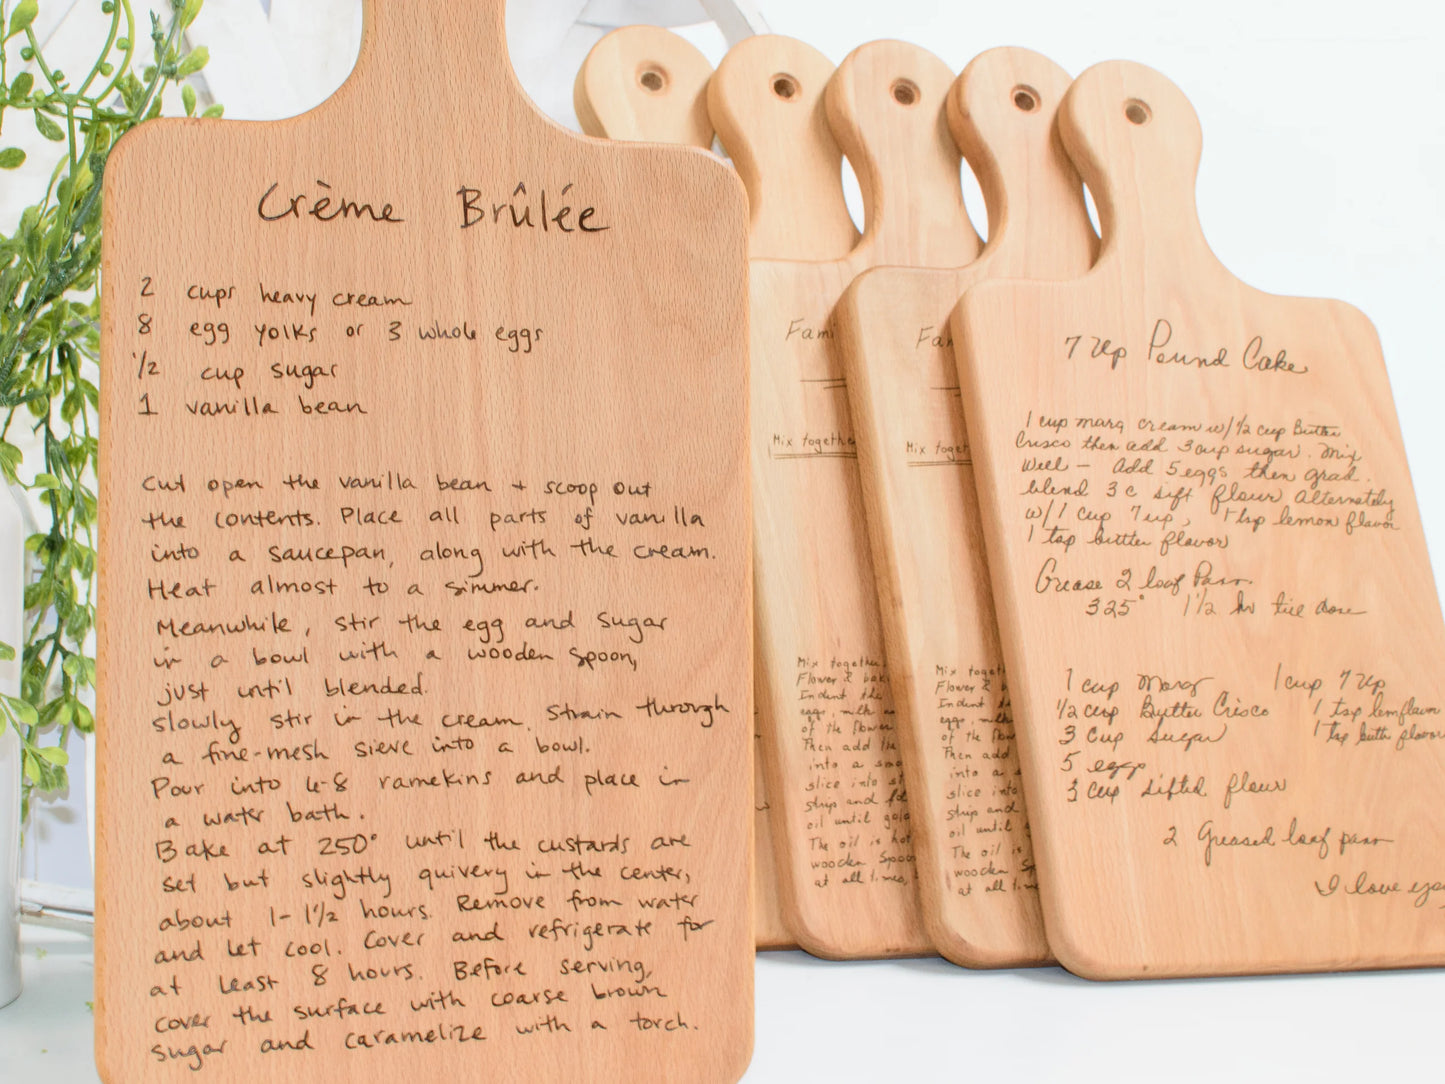 Crème Brûlée
2 cups heavy cream
8 egg yolks or 3 whole eggs
1/2 cup sugar
1 vanilla bean
Cut open the vanilla bean + scoop out
the contents. Place all parts of vanilla
into a saucepan, along with the cream.
Heat almost to a simmer.
Meanwhile, stir the egg and sugar
in a bowl with a wooden spoon,
just until blended.
Slowly stir in the cream. Strain through
a fine-mesh sieve into a bowl.
Pour into 6-8 ramekins and place in
a water bath.
Bake at 250° until the custards are
set but slightly quivery in the center,
about 1-1½ hours. Remove from water
and let cool. Cover and refrigerate for
at least 8 hours. Before serving,
cover the surface with coarse brown
sugar and caramelize with a torch.
Fami
Mix together
Mix together
Flower & bak
Indent the
eggs, milk
of the flower
Then add the
into a
slice into st
strip and
oil until gold
The oil is hot
wooden spoon
at all times,
Fa
Mix toget
Mix togeth
Flower &
Indent
eggs, milk
of the flow
Then add
into a
slice into
strip and
oil until
The oil is
wooden sp
at all time
7 Up Pound Cake
1 cup marg cream w/ 1/2 cup Butter
Crisco then add 3 cup sugar. Mix
Well - Add 5 eggs then grad.
blend 3 c sift flour alternately
w/ 1 cup 7 up, 1 tsp lemon flavor
1 tsp butter flavor
Grease 2 loaf Pans.
325° 1 1/2 hr till done
1 cup Marg 1 cup 7 Up
1/2 cup Butter Crisco 1 tsp lemflavor
3 cup sugar 1 tsp buttr flavor
5 eggs
3 cup sifted flour
2 Greased loaf pans
I love you